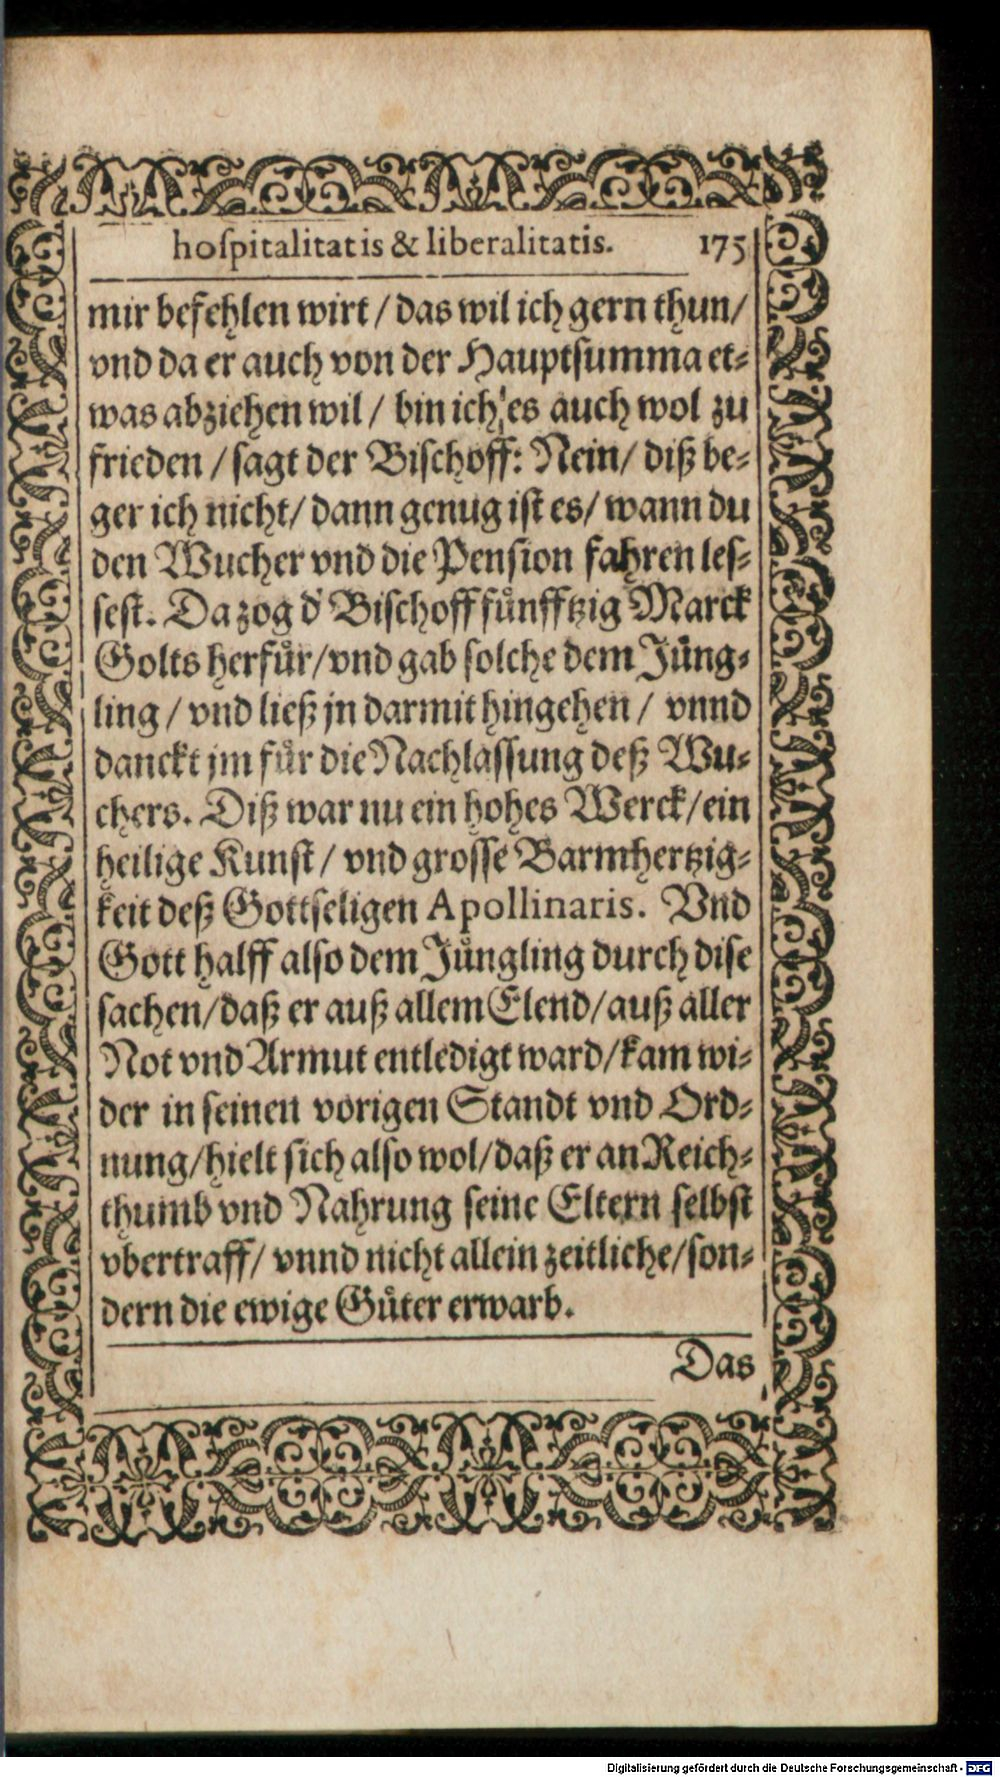 hoſpitalitatis & liberalitatis. 175
mir befehlen wirt / das wil ich gern thun/
vnd da er auch von der Hauptſumma et⸗
was abziehen wil / bin ich es auch wol zu
frieden / ſagt der Biſchoff: Nein/ diß be⸗
ger ich nicht/ dann genug iſt es/ wann du
den Wucher vnd die Penſion fahren leſ⸗
ſeſt. Da zog d' Biſchoff fuͤnfftzig Marck
Golts herfuͤr/vnd gab ſolche dem Juͤng⸗
ling / vnd ließ jn darmit hingehen / vnnd
danckt jm fuͤr die Nachlaſſung deß Wu⸗
chers. Diß war nu ein hohes Werck/ein
heilige Kunſt / vnd groſſe Barmhertzig⸗
keit deß Gottſeligen Apollinaris. Vnd
Gott halff alſo dem Juͤngling durch diſe
ſachen/daß er auß allem Elend/auß aller
Not vnd Armut entledigt ward/kam wi⸗
der in ſeinen vorigen Standt vnd Ord⸗
nung/hielt ſich alſo wol/daß er an Reich⸗
thumb vnd Nahrung ſeine Eltern ſelbſt
vbertraff/ vnnd nicht allein zeitliche/ſon⸗
dern die ewige Guͤter erwarb.
Das
Digitalisierung gefördert durch die Deutsche Forschungsgemeinschaft - DFG